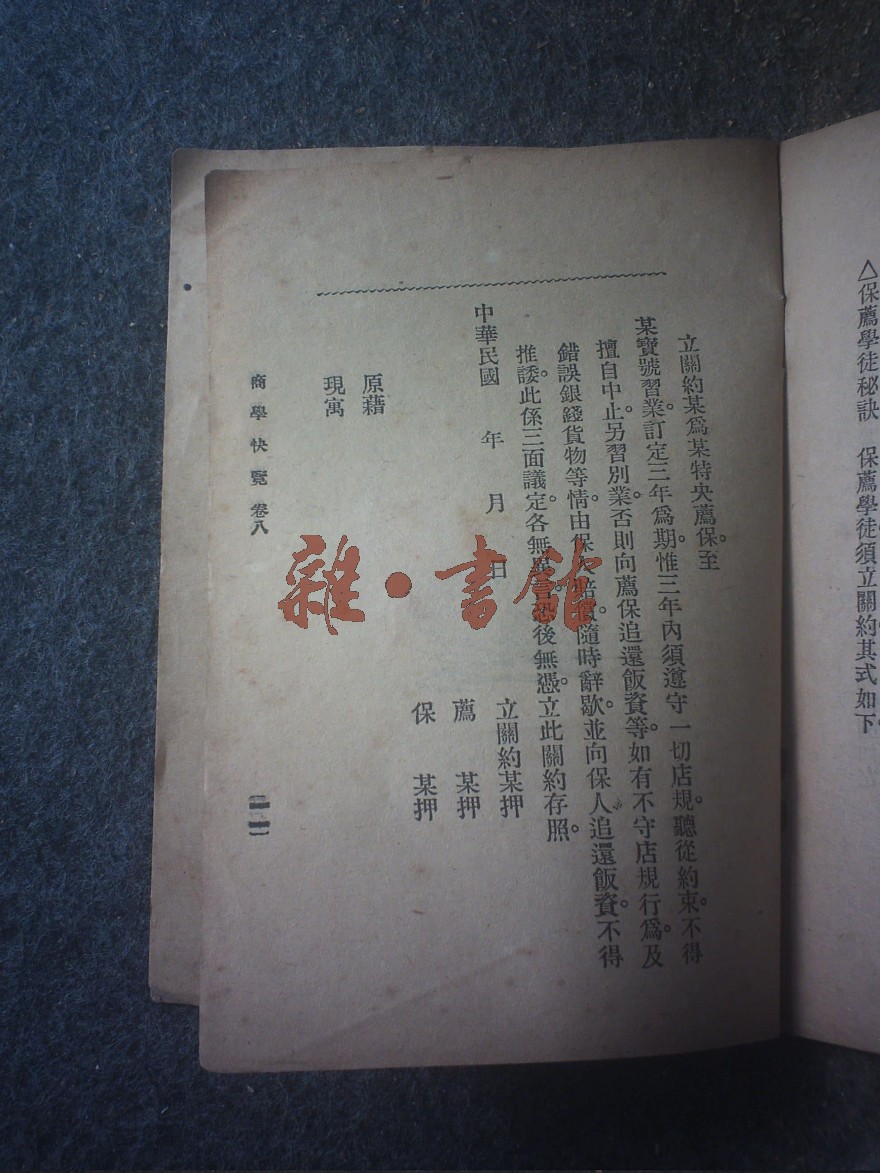 △保薦學徒秘訣　保薦學徒須立關約其式如下。
立關約某爲某特央薦保。至
某寶號習業。訂定三年爲期。惟三年內須遵守一切店規。聽從約束。不得
擅自中止。另習別業。否則向薦保追還飯資等。如有不守店規行爲。及
錯誤銀錢貨物等情。由保人賠償。隨時辭歇。並向保人追還飯資。不得
推諉。此係三面議定。各無異言。恐後無憑。立此關約存照。
中華民國　年　月　日
立關約某押
薦　某押
保　某押
原藉
現寓
商學快覽 卷八
雜·書館